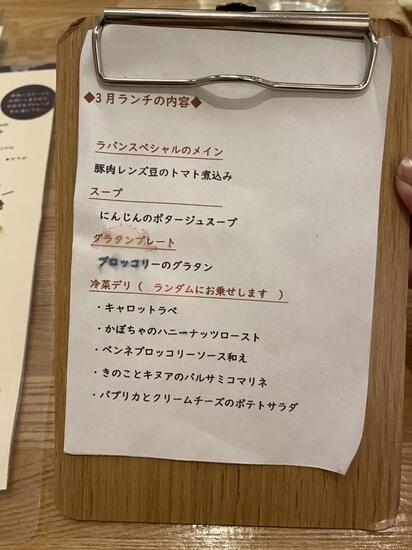 ◆3月ランチの内容◆
ラパンスペシャルのメイン
豚肉レンズ豆のトマト煮込み
スープ
にんじんのポタージュスープ
グラタンプレート
ブロッコリーのグラタン
冷菜デリ（ ランダムにお乗せします ）
・キャロットラペ
・かぼちゃのハニーナッツロースト
・ペンネブロッコリーソース和え
・きのことキヌアのバルサミコマリネ
・パプリカとクリームチーズのポテトサラダ